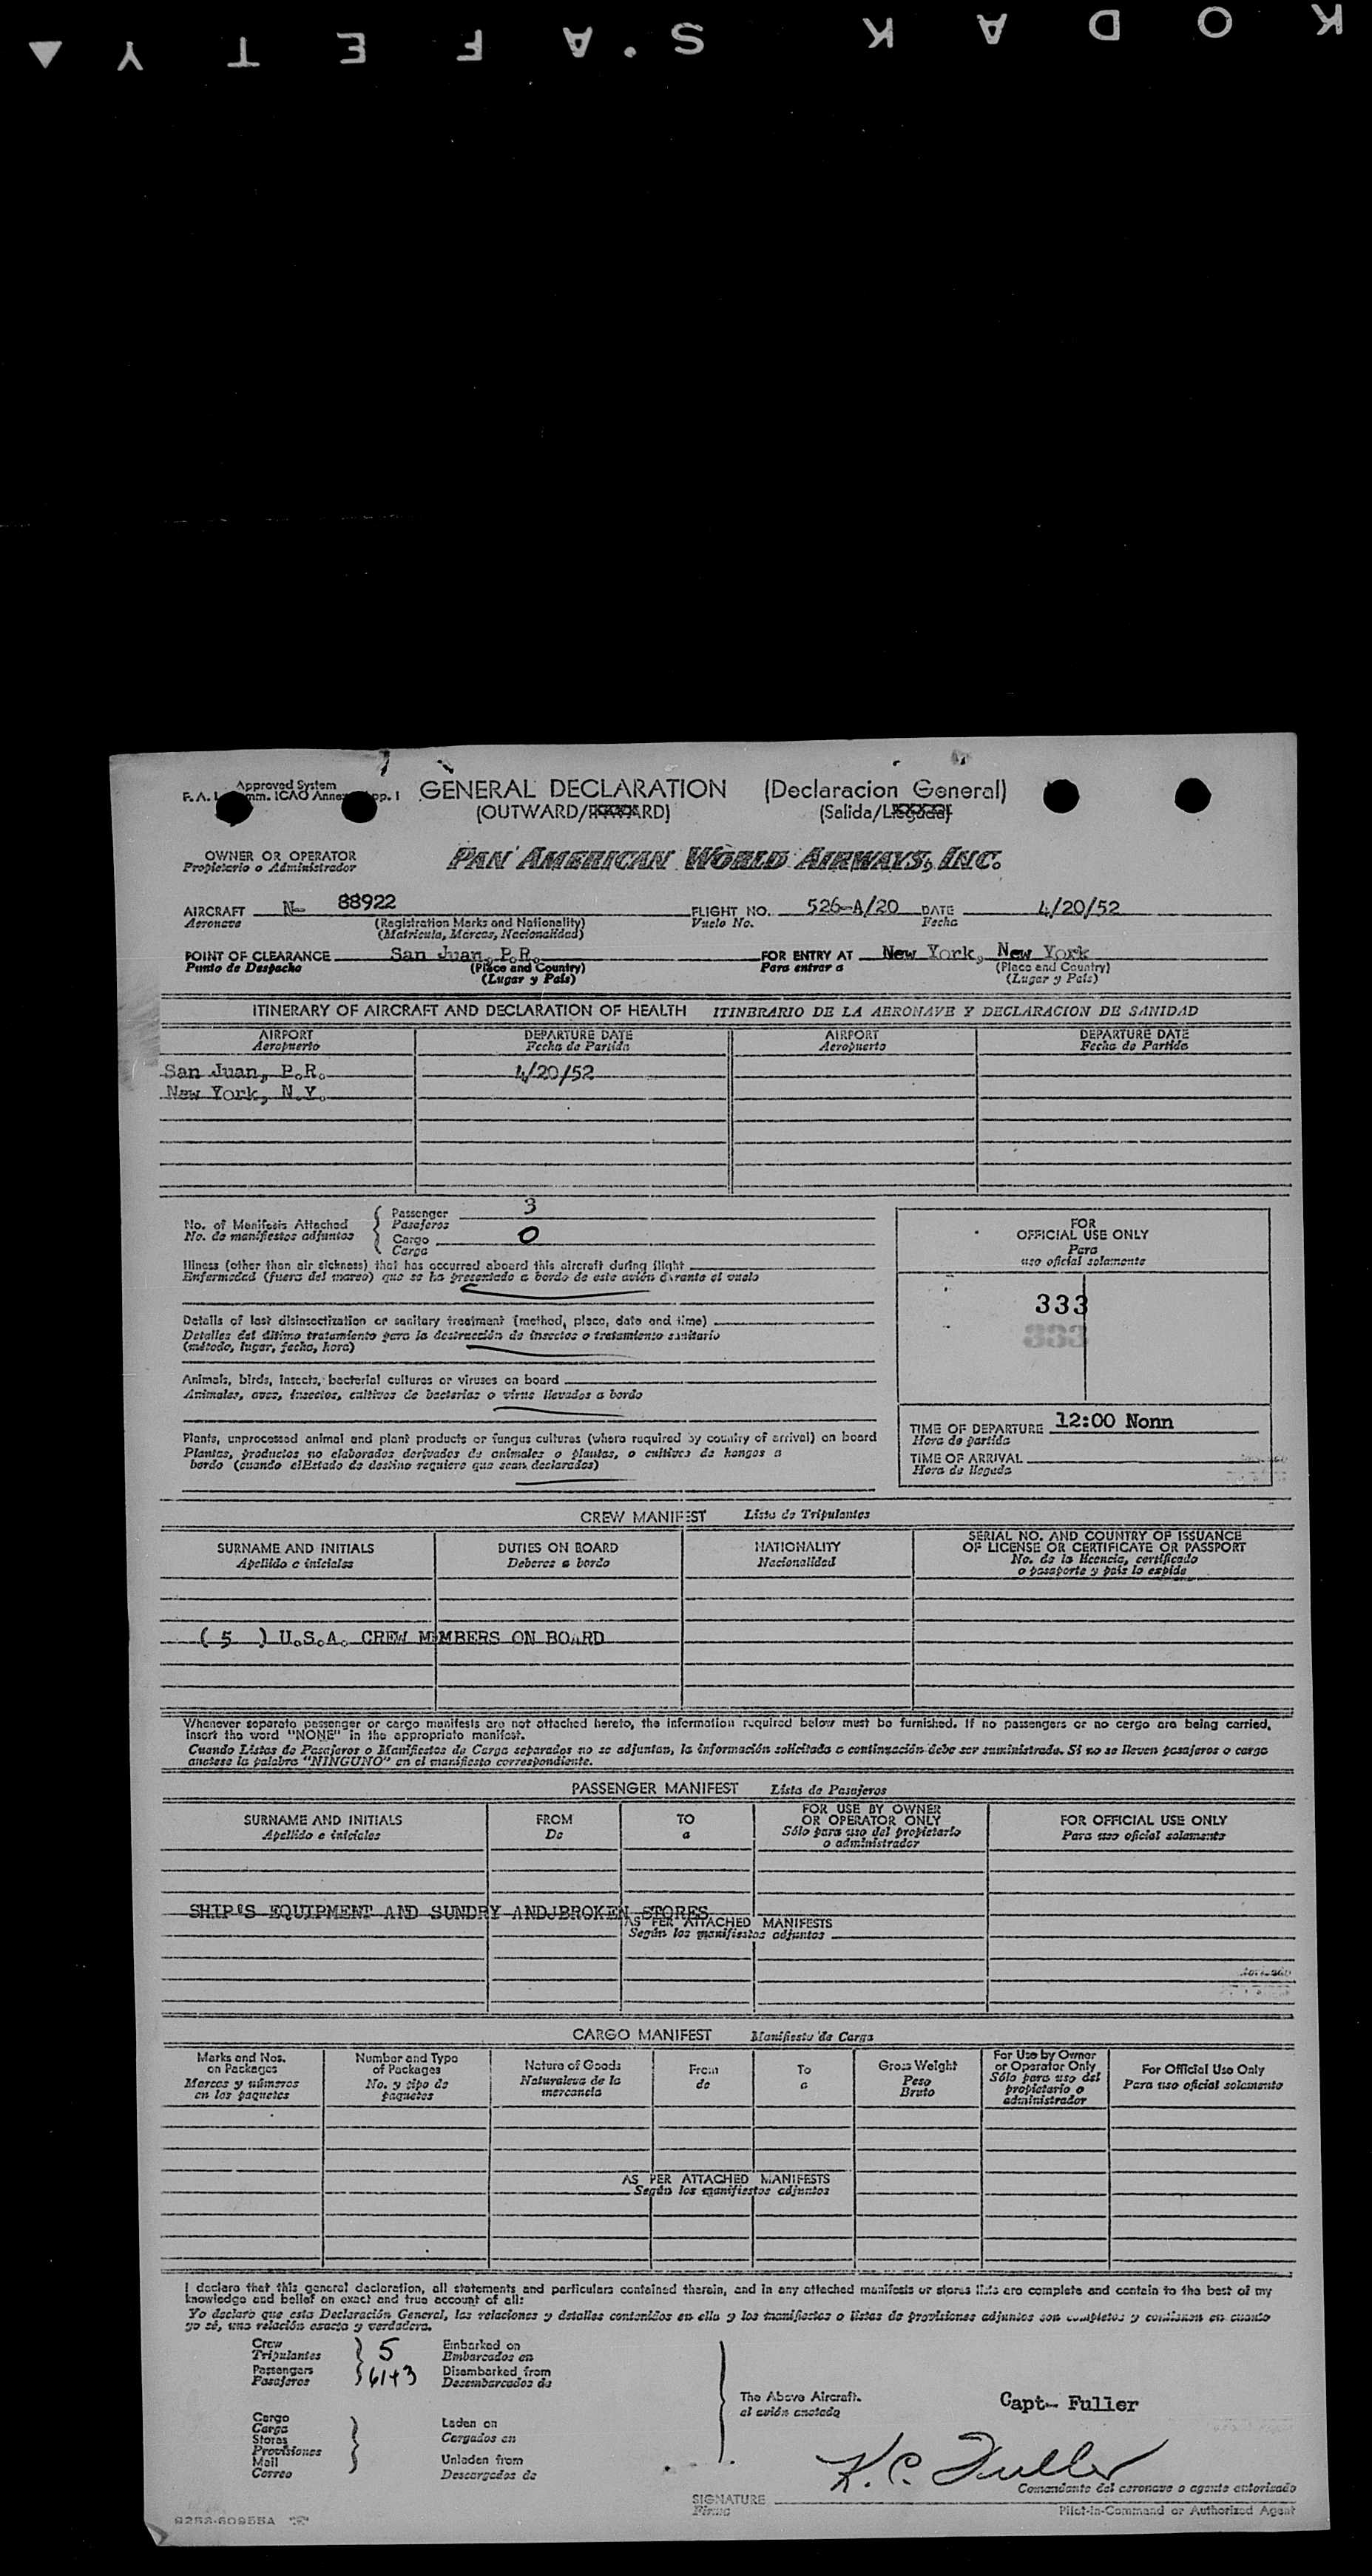 KODAK S'AFETY
Approved System
GENERAL DECLARATION (Declaracion General)
(OUTWARD/ (Salida/
OWNER OR OPERATOR
Propietario o Administrador
PAN AMERICAN WORLD AIRWAYS, INC.
AIRCRAFT N- 88922 FLIGHT NO. 526-A/20 DATE 4/20/52
Aeronave (Registration Marks and Nationality) Vuelo No. Fecha
(Matricula, Marcas, Nacionalidad)
POINT OF CLEARANCE San Juan, P.R. FOR ENTRY AT New York, New York
Punto de Despacho (Place and Country) Para entrar a (Place and Country)
(Lugar y País) (Lugar y País)
ITINERARY OF AIRCRAFT AND DECLARATION OF HEALTH ITINERARIO DE LA AERONAVE Y DECLARACION DE SANIDAD
AIRPORT DEPARTURE DATE AIRPORT DEPARTURE DATE
Aeropuerto Fecha de Partida Aeropuerto Fecha de Partida
San Juan, P.R. 4/20/52
New York, N.Y.
No. of Manifests Attached Passenger 3
No. de manifiestos adjuntos Pasajeros
Cargo 0
Carga
FOR
OFFICIAL USE ONLY
Para
uso oficial solamente
333
Illness (other than air sickness) that has occurred aboard this aircraft during flight
Enfermedad (fuera del mareo) que se ha presentado a bordo de este avión durante el vuelo
Details of last disinsectization or sanitary treatment (method, place, date and time)
Detalles del último tratamiento para la destrucción de insectos o tratamiento sanitario
(método, lugar, fecha, hora)
Animals, birds, insects, bacterial cultures or viruses on board
Animales, aves, insectos, cultivos de bacterias o virus llevados a bordo
Plants, unprocessed animal and plant products or fungus cultures (where required by country of arrival) on board
Plantas, productos no elaborados derivados de animales o plantas, o cultivos de hongos a
bordo (cuando elEstado de destino requiere que sean declarados)
TIME OF DEPARTURE 12:00 Nonn
Hora de partida
TIME OF ARRIVAL
Hora de llegada
CREW MANIFEST Lista de Tripulantes
SURNAME AND INITIALS DUTIES ON BOARD NATIONALITY SERIAL NO. AND COUNTRY OF ISSUANCE
Apellido e iniciales Deberes a bordo Nacionalidad OF LICENSE OR CERTIFICATE OR PASSPORT
No. de la licencia, certificado
o pasaporte y país lo expide
( 5 ) U.S.A. CREW MEMBERS ON BOARD
Whenever separate passenger or cargo manifests are not attached hereto, the information required below must be furnished. If no passengers or no cargo are being carried,
insert the word "NONE" in the appropriate manifest.
Cuando Listas de Pasajeros o Manifiestos de Carga separados no se adjuntan, la información solicitada a continuación debe ser suministrada. Si no se lleven pasajeros o carga
anotese la palabra "NINGUNO" en el manifiesto correspondiente.
PASSENGER MANIFEST Lista de Pasajeros
SURNAME AND INITIALS FROM TO FOR USE BY OWNER FOR OFFICIAL USE ONLY
Apellido e iniciales De a OR OPERATOR ONLY Para uso oficial solamente
Sólo para uso del propietario
o administrador
SHIP'S EQUIPMENT AND SUNDRY ANDJBROKEN STORES
AS PER ATTACHED MANIFESTS
Según los manifiestos adjuntos
CARGO MANIFEST Manifiesto de Carga
Marks and Nos. Number and Type Nature of Goods From To Gross Weight For Use by Owner For Official Use Only
on Packages of Packages Naturaleza de la de a Peso or Operator Only Para uso oficial solamente
Marcas y números No. y tipo de mercancia Bruto Sólo para uso del
en los paquetes paquetes propietario o
administrador
AS PER ATTACHED MANIFESTS
Según los manifiestos adjuntos
I declare that this general declaration, all statements and particulars contained therein, and in any attached manifests or stores lists are complete and contain to the best of my
knowledge and belief an exact and true account of all:
Yo declaro que esta Declaración General, las relaciones y detalles contenidos en ella y los manifiestos o listas de provisiones adjuntos son completos y contienen en cuanto
yo sé, una relación exacta y verdadera.
Crew 5 Embarked on
Tripulantes Embarcados en
Passengers 61+3 Disembarked from
Pasajeros Desembarcados de
The Above Aircraft.
al avión anotado
Capt- Fuller
Cargo
Carga Laden on
Stores Cargados en
Provisiones
Mail Unladen from
Correo Descargados de
K.C. Fuller
Comandante del aeronave o agente autorizado
SIGNATURE
Firma
Pilot-in-Command or Authorized Agent
9252-60955A